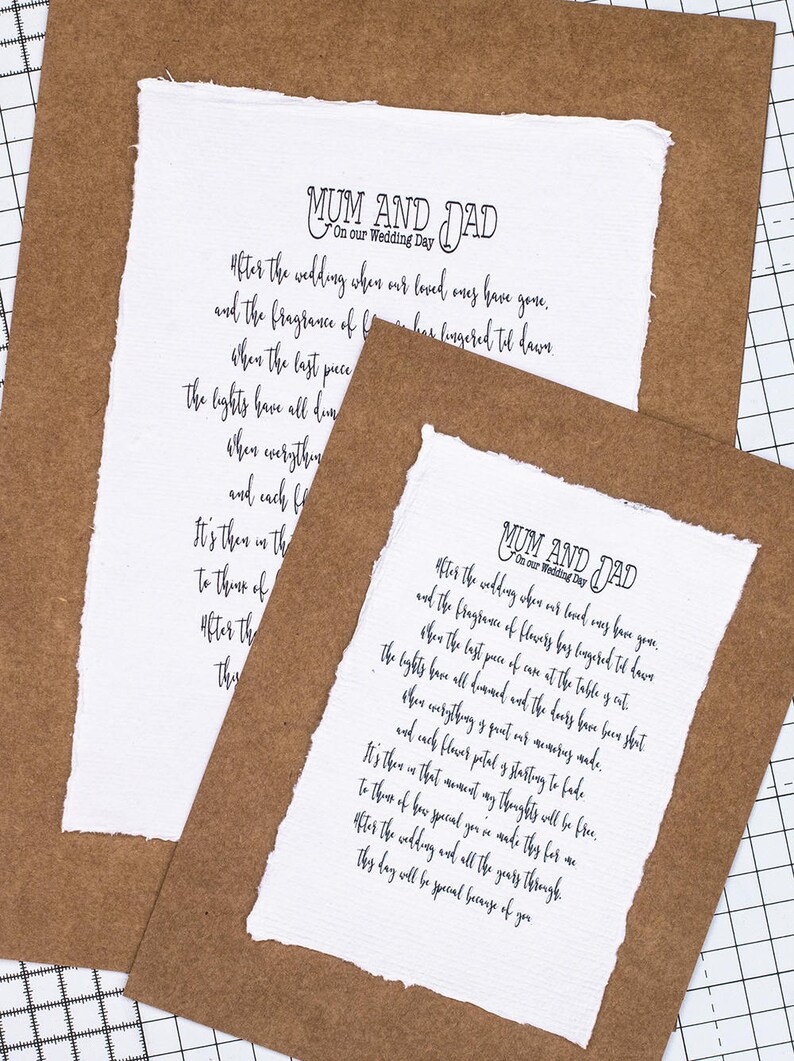 MUM AND DAD
On our Wedding Day
After the wedding when our loved ones have gone,
and the fragrance of f has lingered til dawn.
When the last piece
the lights have all dim
When everything
and each fl
It's then in that
to think of
After the
this
MUM AND DAD
On our Wedding Day
After the wedding when our loved ones have gone,
and the fragrance of flowers has lingered til dawn
When the last piece of cake at the table is cut,
the lights have all dimmed and the doors have been shut.
When everything is quiet our memories made,
and each flower petal is starting to fade.
It's then in that moment my thoughts will be free,
to think of how special you've made this for me.
After the wedding and all the years through,
this day will be special because of you